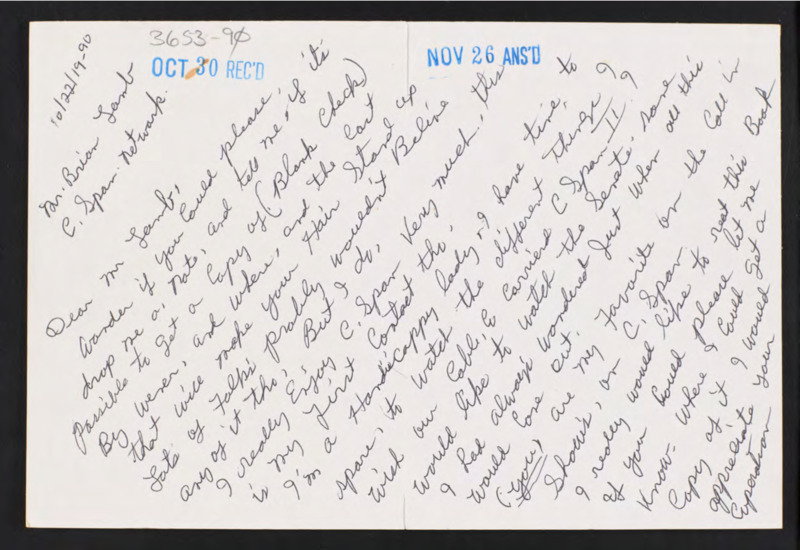 3653-90
OCT 30 REC'D
NOV 26 ANS'D
10/22/19-90
Mr. Brian Lamb
C. Span. Network.
Dear Mr Lamb,
Wonder if you could please,
drop me a, note, and tell me, if its
Possible to get a Copy of (Blank Check)
By Werer, and where, and the Cost
that will make your Hair Stand up
Lots of Folks probly wouldn't Belive
any of it tho, But I do,
I really Enjoy C. Span Very much, this
is my First Contact tho.
I'm a Handicappy lady, I have time, to
spare, to watch the different things
Wish our Cable, Co Carried C Span II
Would like to watch the Senate. some
I had always wondered Just when all this
would Come out.
(you) are my Favorite on the Call in
Shows, on C. Span
I really would like to read this Book
If you Could please let me
Know- where I Could get a
Copy of it I would
appreciate your
Coperation